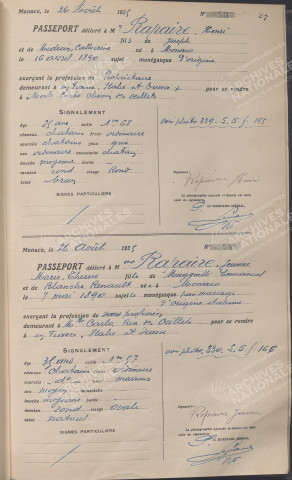 27
Monaco, le 26 Août 1925 N°
PASSEPORT délivré à Mr Raraire, Henri
fils de Joseph
et Medecin, Catherine né à Monaco
le 16 avril 1890 sujet monégasque d'origine
exerçant la profession de Propriétaire
demeurant à en France, Italie et Suisse pour se rendre
à Monte Carlo Chemin des Œillets
SIGNALEMENT
âge 35 ans taille 1m 68
cheveux chatains front ordinaire
sourcils chatains yeux gris
nez ordinaire moustache chatain
bouche moyenne barbe
menton rond visage rond
teint brun
SIGNES PARTICULIERS
voir photo 229
Signature :
Repaire Henri
LE SECRÉTAIRE GÉNÉRAL,
Monaco, le 26 Août 1925 N°
PASSEPORT délivré à Mme Raraire, Jeanne
Marie Thérèse fille de
et de Blanche Renault née à Monaco
le 7 mai 1890 sujette monégasque par mariage
d'origine
exerçant la profession de sans profession
demeurant à Mte Carlo, Rue des Œillets pour se rendre
à en France, Italie et Suisse
SIGNALEMENT
âge 35 ans taille 1m 57
cheveux front
sourcils yeux marrons
nez moyen moustache
bouche moyenne barbe
menton rond visage ovale
teint naturel
SIGNES PARTICULIERS
voir photo 230
Signature :
Repaire Jeanne
LE SECRÉTAIRE GÉNÉRAL,
ARCHIVES NATIONALES